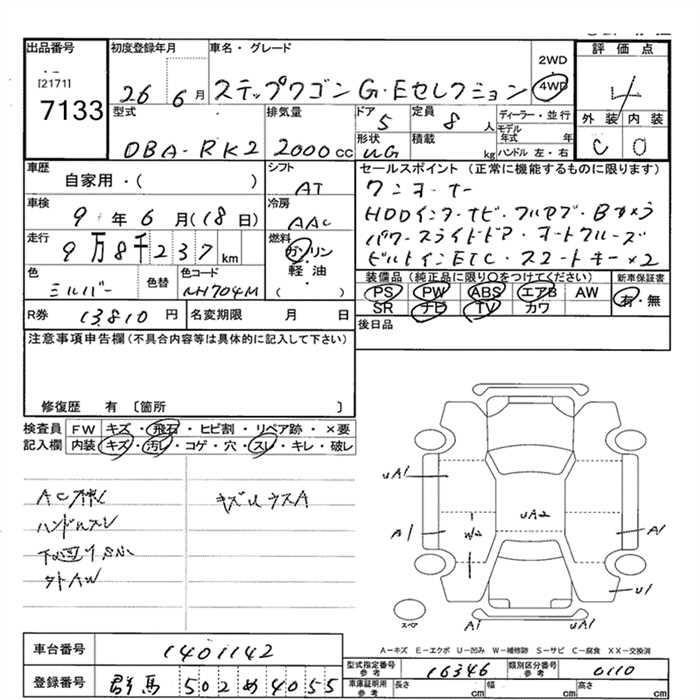 出品番号
[2171]
7133
初度登録年月
26 6月
車名・グレード
ステップワゴン G・Eセレクション
2WD
4WD
評価点
4
型式
DBA-RK2
排気量
2000cc
ドア
5
定員
8人
形状
WG
積載
kg
ディーラー・並行
モデル年式 年
ハンドル 左・右
外装 内装
C C
車歴
自家用・( )
シフト
AT
車検
9年6月(18日)
冷房
AAC
走行
9万8千237km
燃料
ガソリン
軽油
( )
色
シルバー
色替
色コード
NH704M
セールスポイント(正常に機能するものに限ります)
ワンオーナー
HDDインターナビ・フルセグ・Bカメラ
パワースライドドア・オートクルーズ
ビルトインETC・スマートキー×2
装備品(純正品に限り〇をつけてください)
新車保証書
PS PW ABS エアB AW
SR ナビ TV カワ
有・無
後日品
R券 13810円
名変期限 月 日
注意事項申告欄(不具合内容等は具体的に記入して下さい)
修復歴 有 〔箇所 〕
検査員記入欄
FW キズ・飛石・ヒビ割・リペア跡・×要
内装 キズ・汚レ・コゲ・穴・スレ・キレ・破レ
ハンドルスレ
キズUウスA
外AW
uA1
A1
uA2
W2
A1
U1
スペア
A1
uA1
A−キズ E−エクボ U−凹み W−補修跡 S−サビ C−腐食 XX−交換済
車台番号
1401142
登録番号
群馬 502 め 4055
型式指定番号 参考
16346
類別区分番号 参考
0110
車庫証明用 参考
長さ cm
幅 cm
高さ cm